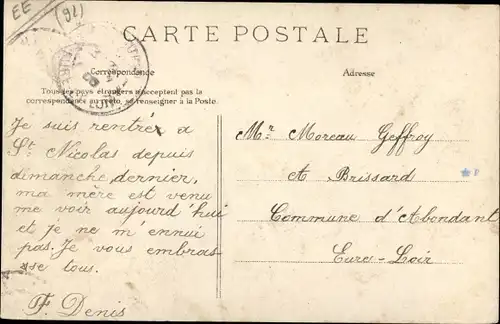 EE
(92)
CARTE POSTALE
Correspondance
Adresse
Tous les pays étrangers n'acceptent pas la
correspondance au recto, se renseigner à la Poste.
Je suis rentrée a
St Nicolas depuis
dimanche dernier,
ma mère est venu
me voir aujourd'hui
et je ne m'ennui
pas. Je vous embras
sse tous.
F. Denis
Mr. Moreau Geffroy
A Brissard
Commune d'Abondant
Eure-Loir